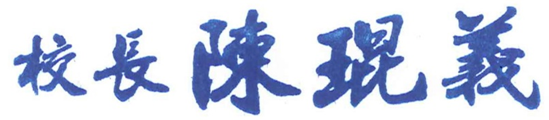 校長 陳琨義